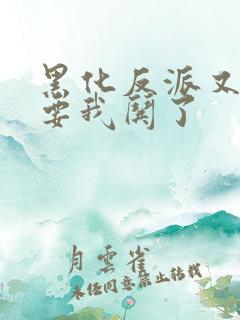 黑化反派又
要我闗了
月雲雀
未任同意禁止转载